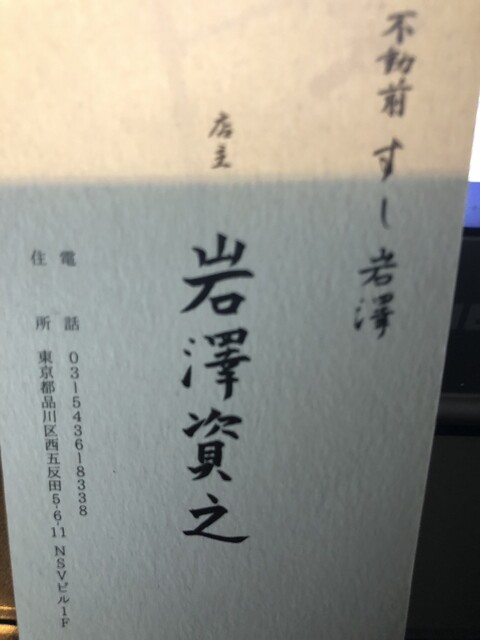 不動前 すし 岩澤
店主
岩澤資之
電話 03-5436-8338
住所 東京都品川区西五反田5-6-11 NSVビル1F